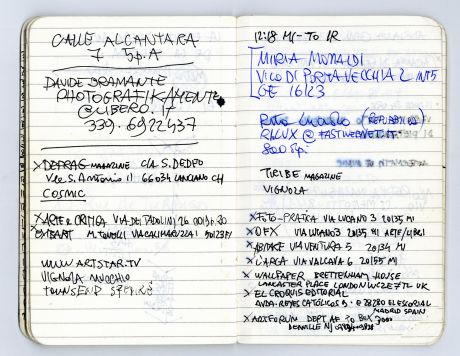 CALLE ALCANTARA
7 5º A
DAVIDE BRAMANTE
PHOTOGRAFIKAMENTE
@LIBERO.IT
339.6922437
XDEPRAG MAGAZINE C/O S. DEDEO
V.le S. Antonio 11 66034 LANCIANO CH
COSMIC
XARTE & CRITICA VIA DEI
XEXIBART
WWW.ARTSTAR.TV
VIGNOLA MUCCHIO
TOWNSEND
12:18 MI-TO 1R
MIRIA MONALDI
VICO DI PORTA VECCHIA 2 INT5
GE 16123
(REPUBBLICA)
@FASTWEBNET.IT
TRIBE MAGAZINE
VIGNOLA
XFOTO-PRATIKA VIA LUCANO 3 20135 MI
XOFX VIA LUCANO 3 20135 MI
XABITARE VIA VENTURA 5 20134 MI
XL'ARCA VIA VALCAVA 6 20155 MI
XWALLPAPER BRETTENHAM HOUSE
LANCASTER PLACE LONDON WC2E 7TL UK
XEL CROQUIS EDITORIAL
AVDA. REYES CATÓLICOS 9 · E 28280 EL ESCORIAL
MADRID SPAIN
XARTFORUM DEPT AF PO BOX 3000
DENVILLE NJ